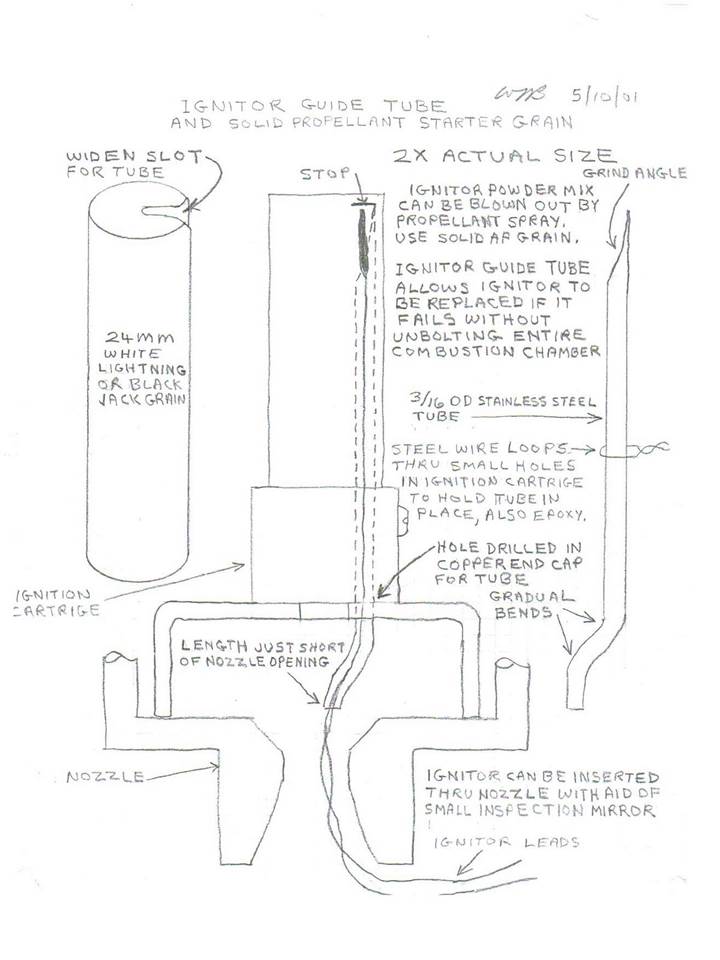 IGNITOR GUIDE TUBE
AND SOLID PROPELLANT STARTER GRAIN
5/10/01
2X ACTUAL SIZE
WIDEN SLOT
FOR TUBE
STOP
GRIND ANGLE
IGNITOR POWDER MIX
CAN BE BLOWN OUT BY
PROPELLANT SPRAY.
USE SOLID AP GRAIN.
IGNITOR GUIDE TUBE
ALLOWS IGNITOR TO
BE REPLACED IF IT
FAILS WITHOUT
UNBOLTING ENTIRE
COMBUSTION CHAMBER
24mm
WHITE
LIGHTNING
OR BLACK
JACK GRAIN
3/16 OD STAINLESS STEEL
TUBE
STEEL WIRE LOOPS
THRU SMALL HOLES
IN IGNITION CARTRIGE
TO HOLD TUBE IN
PLACE, ALSO EPOXY.
HOLE DRILLED IN
COPPER END CAP
FOR TUBE
GRADUAL
BENDS
IGNITION
CARTRIGE
LENGTH JUST SHORT
OF NOZZLE OPENING
NOZZLE
IGNITOR CAN BE INSERTED
THRU NOZZLE WITH AID OF
SMALL INSPECTION MIRROR
IGNITOR LEADS